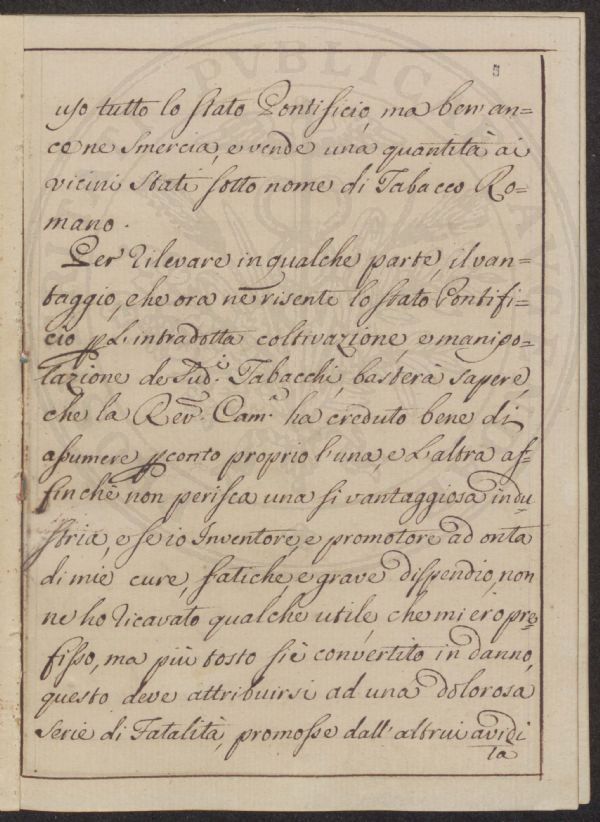 3
uso tutto lo stato Pontificio, ma ben an=
co ne smercia, e vende una quantità ai
vicini Stati sotto nome di Tabacco Ro=
mano.
Per rilevare in qualche parte, il van=
taggio, che ora ne risente lo stato Pontifi=
cio p L'intradotta coltivazione, e manipo=
lazione de Sud.i Tabacchi, basterà sapere,
che la Rev. Cam.a ha creduto bene di
assumere p conto proprio l'una, e L'altra af=
finchè non perisca una si vantaggiosa indu=
stria, e se io Inventore, e promotore ad onta
di mie cure, fatiche, e grave dispendio, non
ne ho ricavato qualche utile, che mi ero pre=
fisso, ma più tosto siè convertito in danno,
questo deve attribuirsi ad una dolorosa
serie di Fatalità, promosse dall'altrui avidi
ta